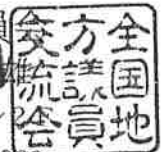 全国地
方議員
交流会